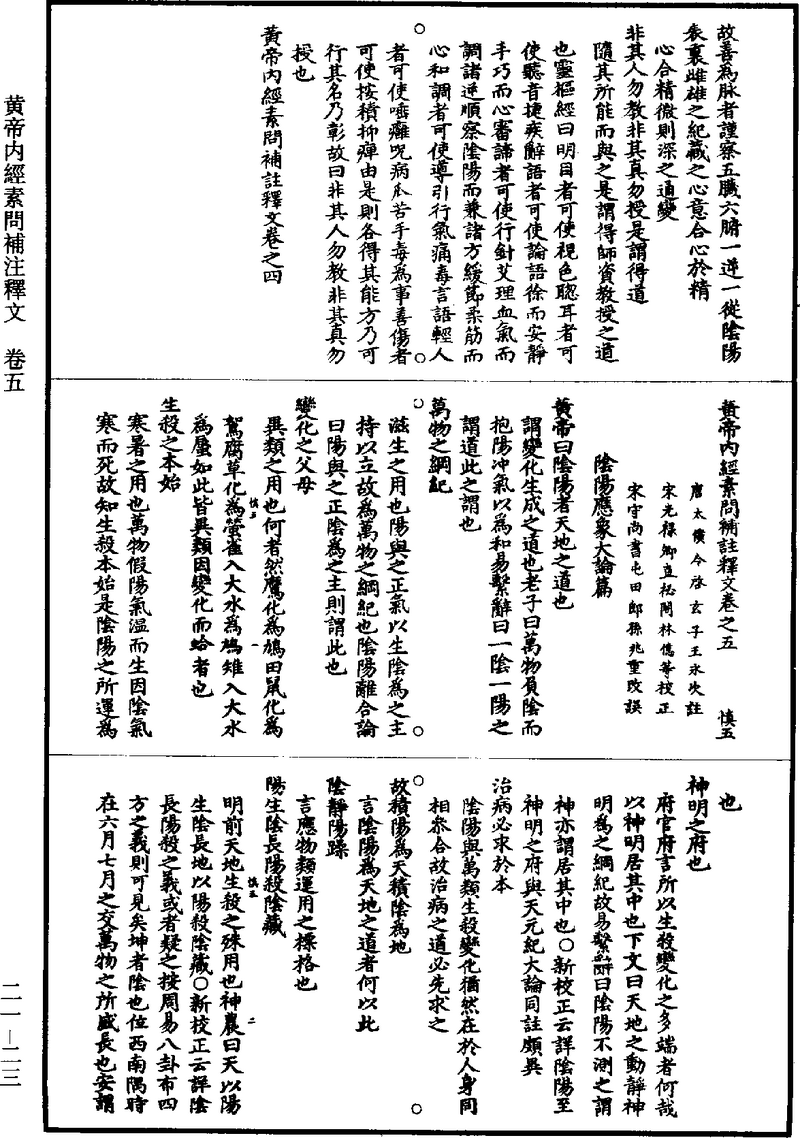 黃帝內經素問補注釋文　卷五
二一—二三
故善為脉者謹察五臟六腑一逆一從陰陽
表裏雌雄之紀藏之心意合心於精
心合精微則深之通變
非其人勿教非其真勿授是謂得道
隨其所能而與之是謂得師資教授之道
也靈樞經曰明目者可使視色聦耳者可
使聽音捷疾辭語者可使論語徐而安靜
手巧而心審諦者可使行針艾理血氣而
調諸逆順察陰陽而兼諸方緩節柔筋而
心和調者可使導引行氣痛毒言語輕人
者可使唾癰呪病爪苦手毒為事善傷者
可使按積抑痺由是則各得其能方乃可
行其名乃彰故曰非其人勿教非其真勿
授也
黃帝內經素問補註釋文卷之四
黃帝內經素問補註釋文卷之五　慎五
唐太僕令啓玄子王冰次註
宋光祿卿直祕閣林億等校正
宋守尚書屯田郎孫兆重改誤
陰陽應象大論篇
黃帝曰陰陽者天地之道也
謂變化生成之道也老子曰萬物負陰而
抱陽冲氣以為和易繫辭曰一陰一陽之
謂道此之謂也
萬物之綱紀
滋生之用也陽與之正氣以生陰為之主
持以立故為萬物之綱紀也陰陽離合論
曰陽與之正陰為之主則謂此也
變化之父母
異類之用也何者然鷹化為鳩田鼠化為
慎五　一
鴽腐草化為螢雀入大水為鴿雉入大水
為蜃如此皆異類因變化而給者也
生殺之本始
寒暑之用也萬物假陽氣温而生因陰氣
寒而死故知生殺本始是陰陽之所運為
也
神明之府也
府宮府言所以生殺變化之多端者何哉
以神明居其中也下文曰天地之動靜神
明為之綱紀故易繫辭曰陰陽不測之謂
神亦謂居其中也○新校正云詳陰陽至
神明之府與天元紀大論同註頗異
治病必求於本
陰陽與萬類生殺變化猶然在於人身同
相參合故治病之道必先求之
故積陽為天積陰為地
言陰陽為天地之道者何以此
陰靜陽躁
言應物類運用之標格也
陽生陰長陽殺陰藏
明前天地生殺之殊用也神農曰天以陽
慎五　二
生陰長地以陽殺陰藏○新校正云詳陰
長陽殺之義或者疑之按周易八卦布四
方之義則可見矣坤者陰也位西南隅時
在六月七月之交萬物之所盛長也安謂